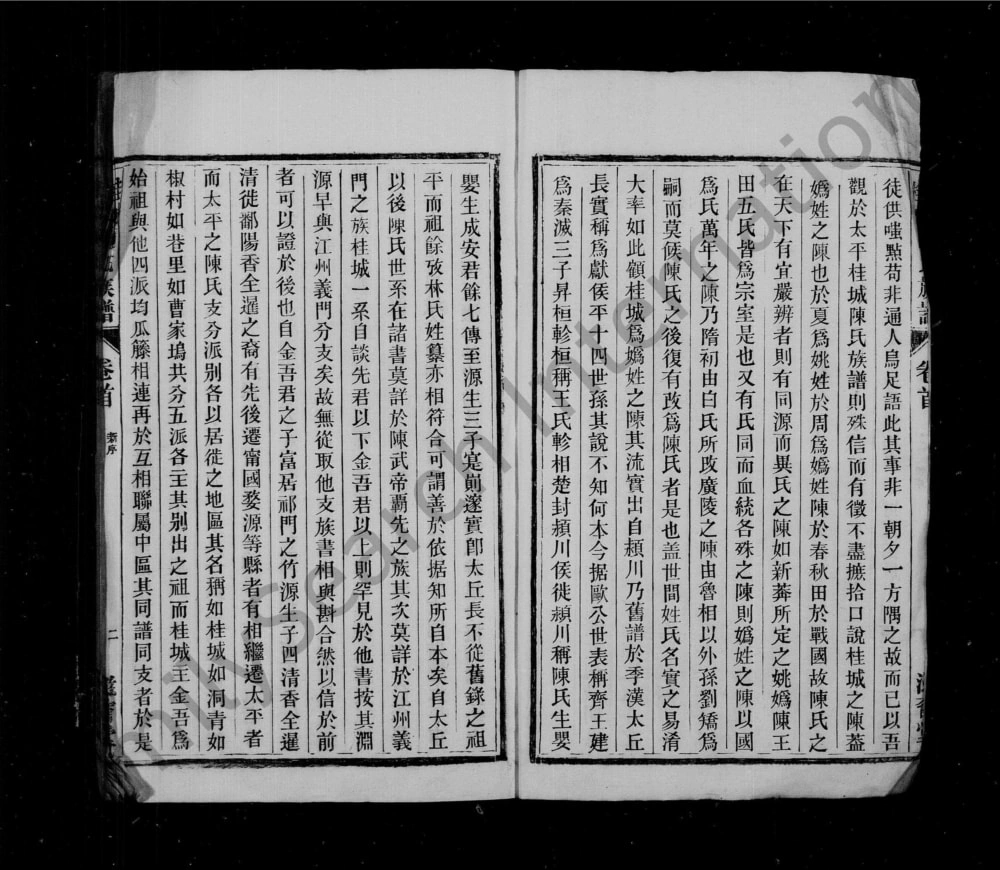 徒供嗤點苟非通人烏足語此其事非一朝夕一方隅之故而已以吾
觀於太平桂城陳氏族譜則殊信而有徵不盡摭拾口說桂城之陳蓋
嬀姓之陳也於夏爲姚姓於周爲嬀姓陳於春秋田於戰國故陳氏之
在天下有宜嚴辨者則有同源而異氏之陳如新莽所定之姚嬀陳王
田五氏皆爲宗室是也又有氏同而血統各殊之陳則嬀姓之陳以國
爲氏萬年之陳乃隋初由白氏所改廣陵之陳由魯相以外孫劉矯爲
嗣而莫傾陳氏之後復有改爲陳氏者是也盖世間姓氏名實之易淆
大率如此顧桂城爲嬀姓之陳其流實出自潁川乃舊譜於季漢太丘
長實稱爲獻侯平十四世孫其說不知何本今据歐公世表稱齊王建
爲秦滅三子昇桓軫桓稱王氏軫相楚封潁川侯徙潁川稱陳氏生嬰
族譜
卷首
嬰生成安君餘七傳至源生三子寔﻿邃實卽太丘長不從舊錄之祖
平而祖餘攷林氏姓纂亦相符合可謂善於依据知所自本矣自太丘
以後陳氏世系在諸書莫詳於陳武帝霸先之族其次莫詳於江州義
門之族桂城一系自談先君以下金吾君以上則罕見於他書按其淵
源早與江州義門分支矣故無從取他支族書相與斟合然以信於前
者可以證於後也自金吾君之子富居祁門之竹源生子四清香全暹
清徙鄱陽香全暹之裔有先後遷甯國婺源等縣者有相繼遷太平者
而太平之陳氏支分派別各以居徙之地區其名稱如桂城如洞青如
椒村如巷里如曹家塢共分五派各主其別出之祖而桂城主金吾爲
始祖與他四派均瓜籐相連再於互相聯屬中區其同譜同支者於是
氏族譜
卷首
新序
二
FamilySearch International